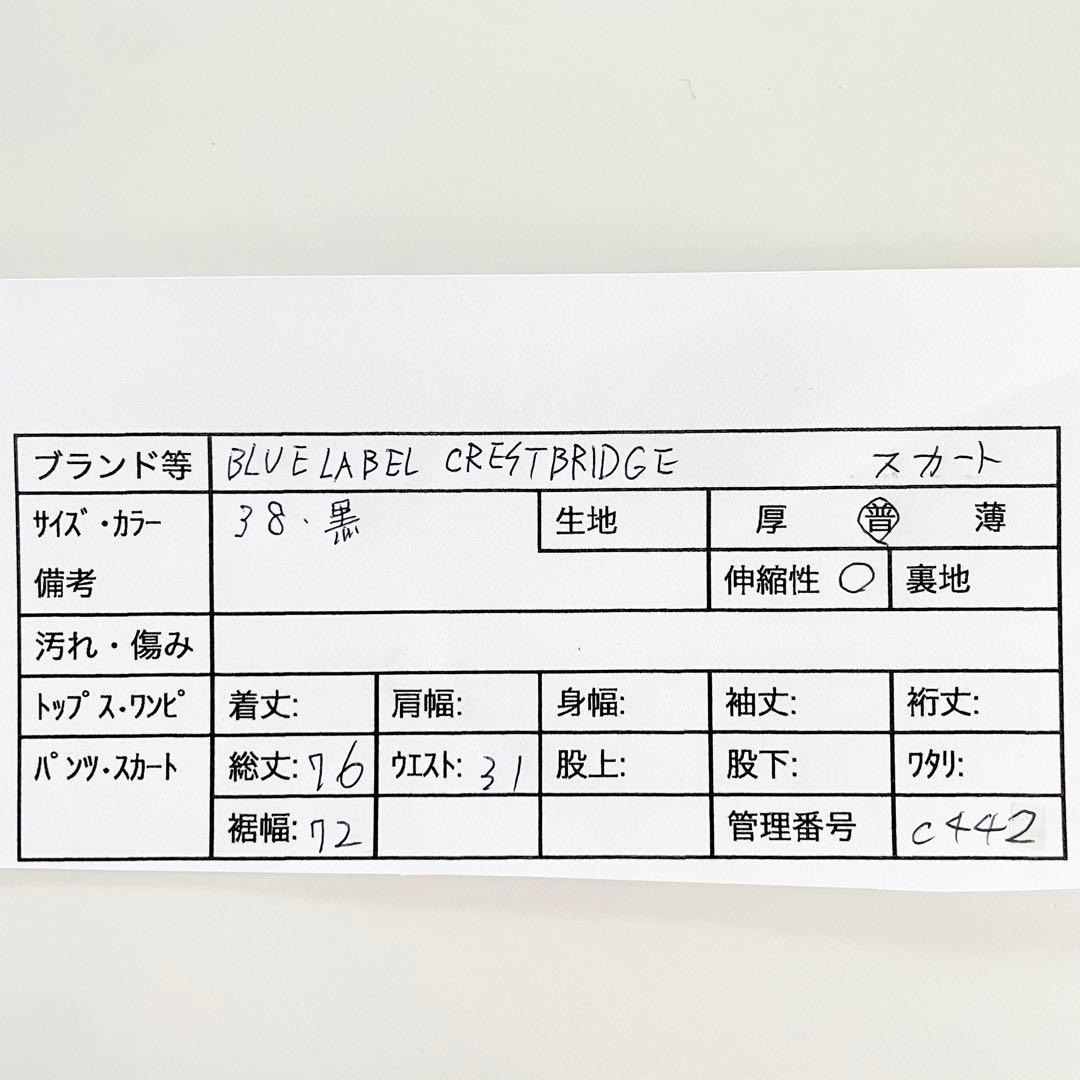 ブランド等 BLUE LABEL CRESTBRIDGE スカート
サイズ・カラー 38・黒 生地 厚 普 薄
備考 伸縮性 ○ 裏地
汚れ・傷み
トップス・ワンピ 着丈: 肩幅: 身幅: 袖丈: 裄丈:
パンツ・スカート 総丈:76 ウエスト:31 股上: 股下: ワタリ:
裾幅:72 管理番号 c442